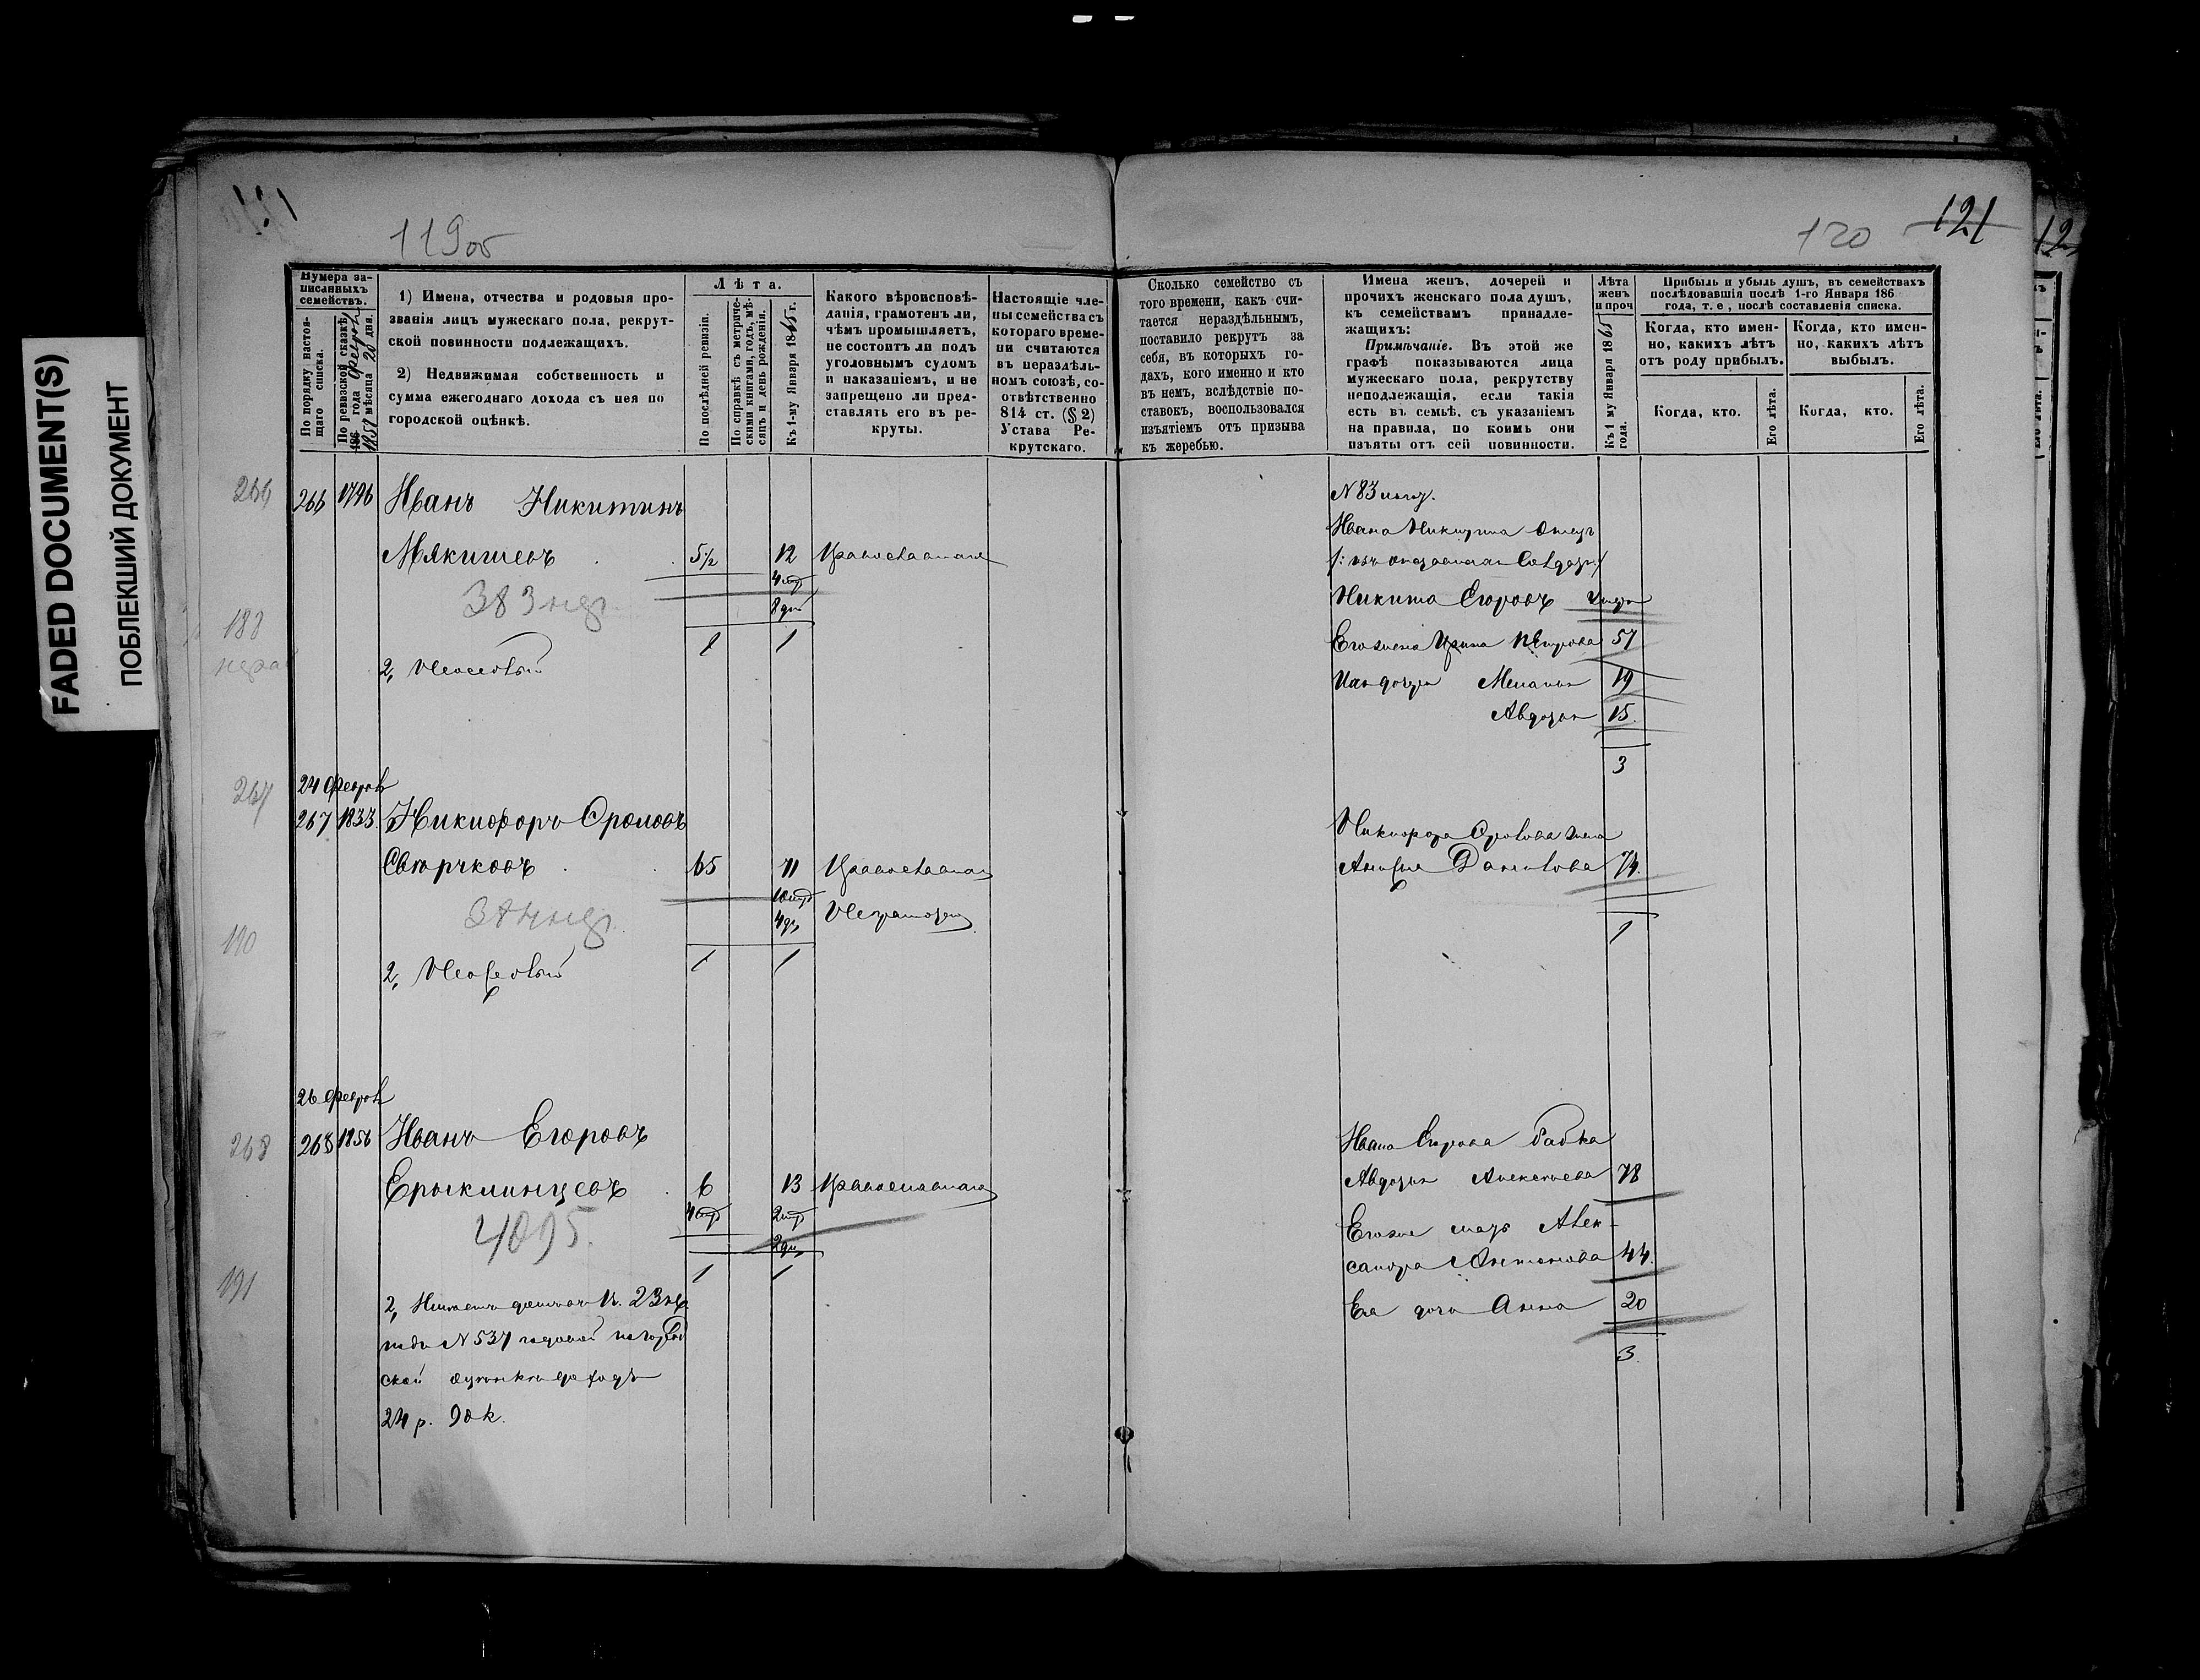 FADED DOCUMENT(S)
ПОБЛЕКШИЙ ДОКУМЕНТ
119об
120
121
Нумера за-
писанныхъ
семействъ.
По порядку настоя-
щаго списка.
По ревизской сказкѣ
186 года Февраля
1858 мѣсяца 20 дня.
1) Имена, отчества и родовыя про-
званія лицъ мужескаго пола, рекрут-
ской повинности подлежащихъ.
2) Недвижимая собственность и
сумма ежегоднаго дохода съ нея по
городской оцѣнкѣ.
Лѣта.
По послѣдней ревизіи.
По справкѣ съ метриче-
скими книгами, годъ, мѣ-
сяцъ и день рожденія.
Къ 1-му Января 1865 г.
Какого вѣроисповѣ-
данія, грамотенъ ли,
чѣмъ промышляетъ,
не состоитъ ли подъ
уголовнымъ судомъ
и наказаніемъ, и не
запрещено ли пред-
ставлять его въ ре-
круты.
Настоящіе чле-
ны семейства съ
котораго време-
ни считаются
въ нераздѣль-
номъ союзѣ, со-
отвѣтственно
814 ст. (§ 2)
Устава Ре-
крутскаго.
Сколько семейство съ
того времени, какъ счи-
тается нераздѣльнымъ,
поставило рекрутъ за
себя, въ которыхъ го-
дахъ, кого именно и кто
въ немъ, вслѣдствіе по-
ставокъ, воспользовался
изъятіемъ отъ призыва
къ жеребью.
Имена женъ, дочерей и
прочихъ женскаго пола душъ,
къ семействамъ принадле-
жащихъ:
Примѣчаніе. Въ этой же
графѣ показываются лица
мужескаго пола, рекрутству
неподлежащія, если такія
есть въ семьѣ, съ указаніемъ
на правила, по коимъ они
изъяты отъ сей повинности.
Лѣта
женъ
и проч
Къ 1 му Января 1865
года.
Прибыль и убыль душъ, въ семействахъ
послѣдовавшія послѣ 1-го Января 186
года, т. е., послѣ составленія списка.
Когда, кто имен-
но, какихъ лѣтъ
отъ роду прибылъ.
Когда, кто имен-
но, какихъ лѣтъ
выбылъ.
Когда, кто.
Его лѣта.
Когда, кто.
Его лѣта.
266 266 1796 Иванъ Никитинъ
Мякишевъ 5½ 12 Православнаго
8 дн
1 1
2, Неосѣдлый
N 83
Ивана Никитина Отецъ
Никита Егоровъ умеръ
Его жена Ирина Петрова 57
Ихъ дочери Меланья 19
Авдотья 15.
3
24 Февраля
267 267 1833 Никифоръ Фроловъ
Сверчковъ 65 71 Православнаго
Неграмотенъ
1 1
190
2, Неосѣдлый
Никифора Фролова жена
Анисья Данилова 74.
1
26 Февраля
268 268 1856 Иванъ Егоровъ
Ерыклинцевъ 6 13 Православнаго
4095.
1 1
191
2, Имѣетъ домъ въ 23 кв.
подъ N 537 годовой по город
ской оцѣнкѣ доходъ
24 р. 90 к.
Ивана Егорова бабка
Авдотья Алексѣева 78
Его же мать Алек-
сандра Антонова 44.
Ея дочь Анна 20
3.